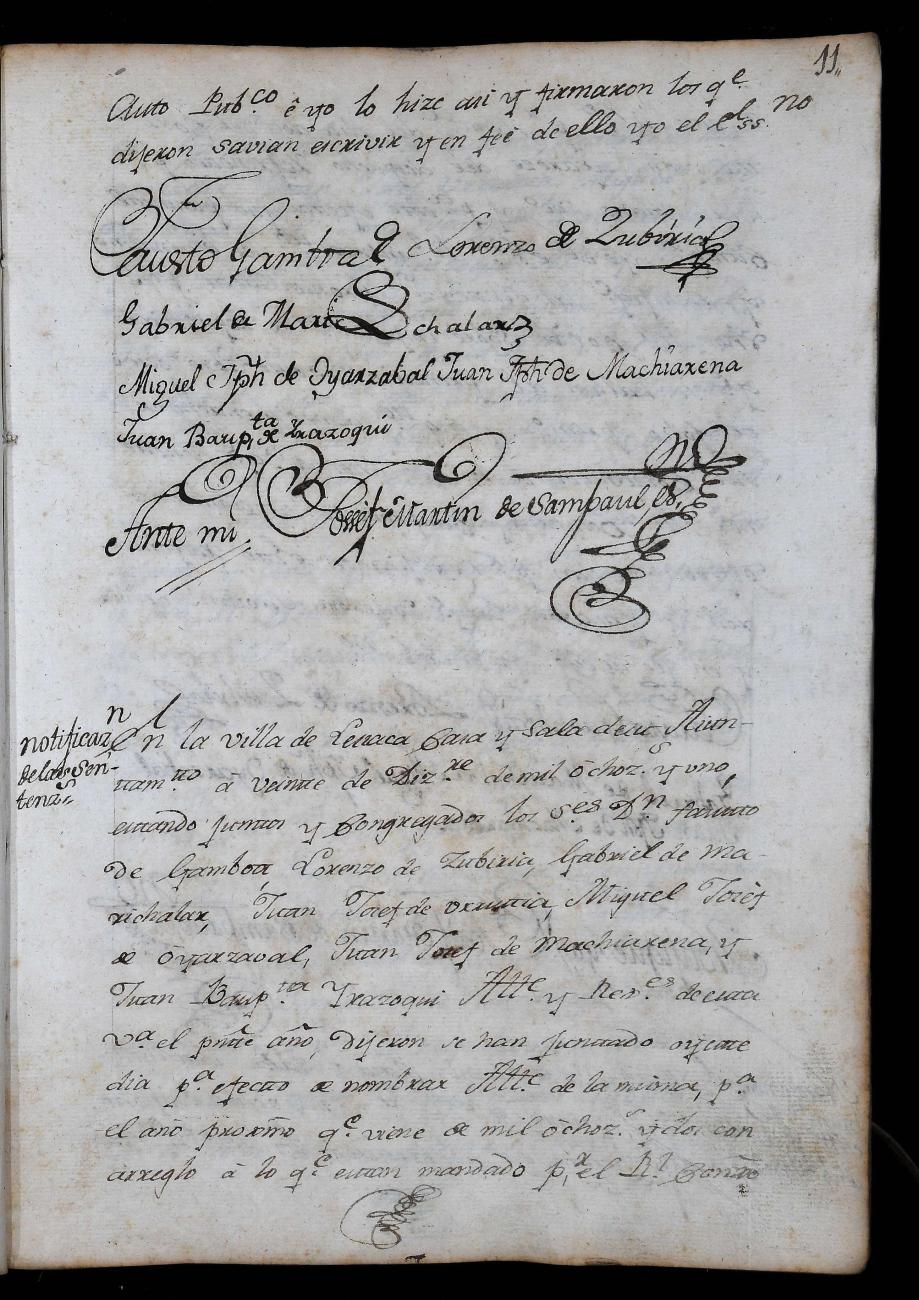 11
Auto Pubco ê yo lo hize asi y firmaron los qe
dijeron savian escrivir y en feé de ello yo el el ss.no
Fausto Gamboa Lorenzo de Zubiria
Gabriel de Marichalar
Miguel Jph de Oyarzabal Juan Jph de Machiarena
Juan Baupta de Yrazoqui
Ante mi Jossef Martin de Sampaul, es.
notificazn
de las Sen-
tenzs
En la villa de Lesaca Casa y Sala de su Aiun-
tamto â veinte de Dizre de mil ôchozs y uno,
estando juntos y Congregados los Ses Dn fausto
de Gamboa, Lorenzo de Zubiria, Gabriel de Ma-
richalar, Juan Josef de Urrutia, Miguel Josef
de ôyarzaval, Juan Josef de Machiarena, y
Juan Baupta Yrazoqui Alte y Rexes de esta
va el pnte año, dijeron se han juntado oy este
dia pa efecto de nombrar Alte de la misma, pa
el año proxmo qe viene de mil ôchozs y dos con
arreglo â lo qe estan mandado pr el Rl Conso